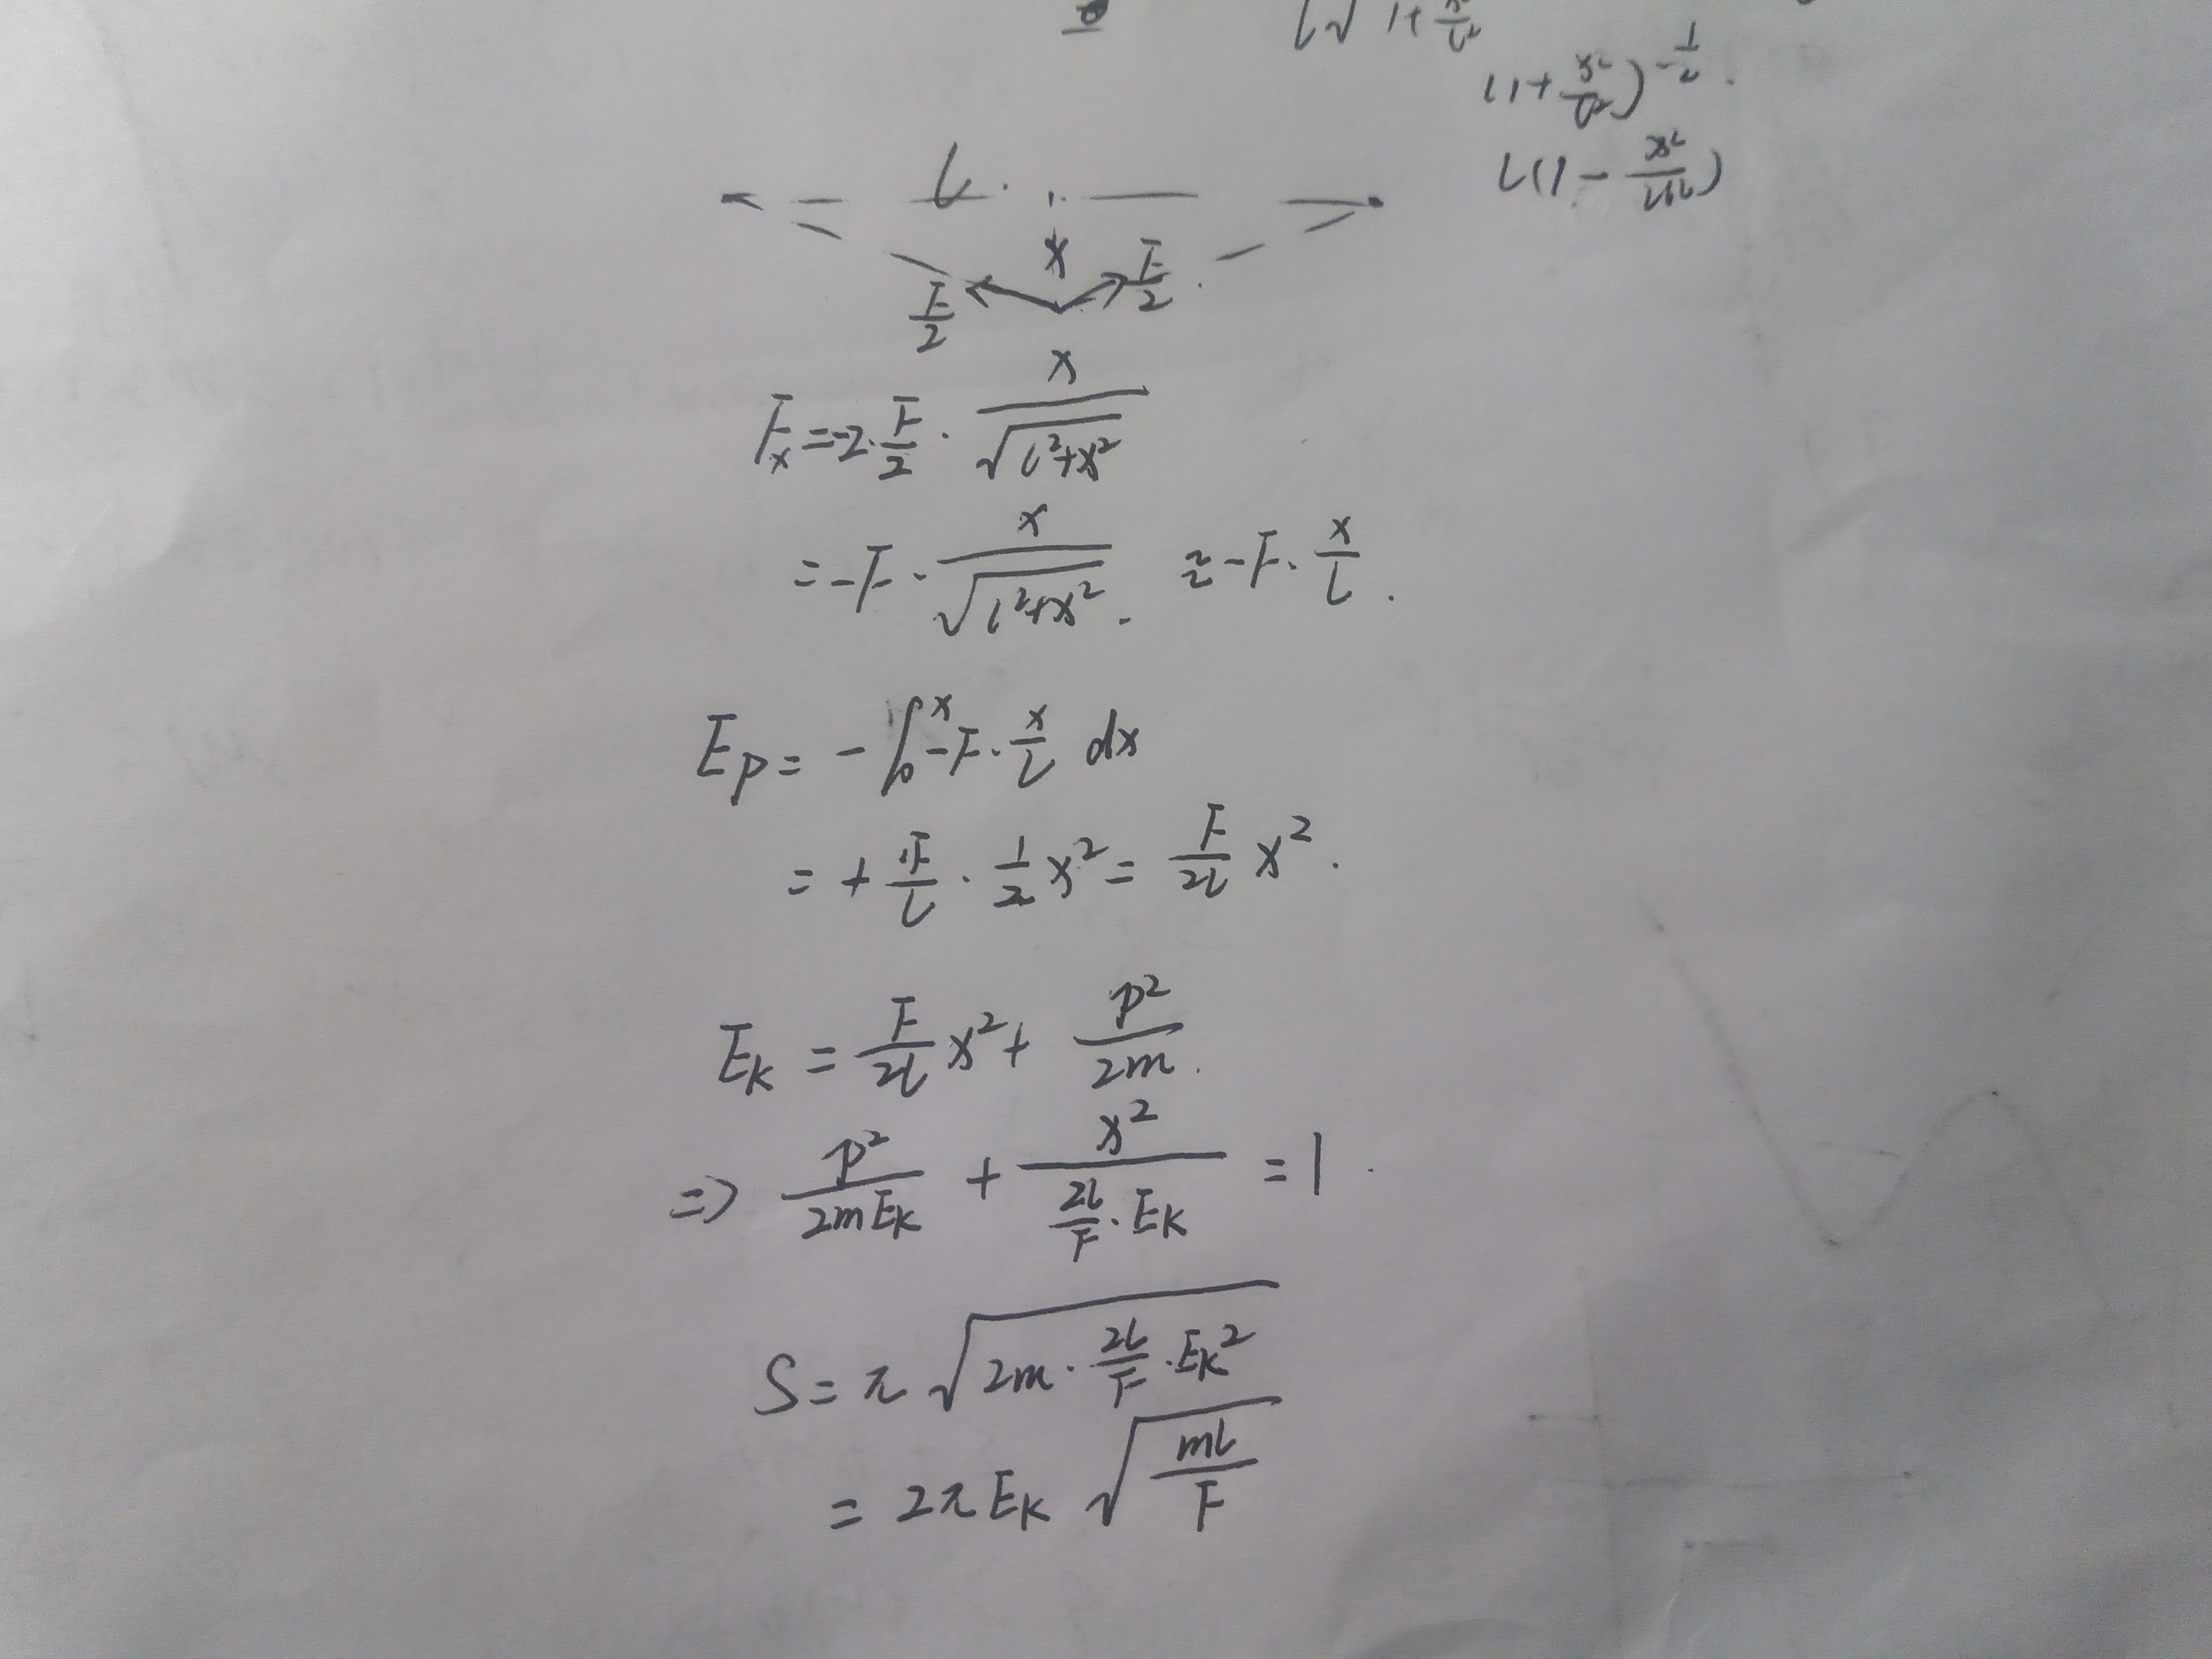 l√1+x²/l²
(1+x²/l²)^-1/2.
l(1-
l.
x
F/2 F/2.
Fx=-2·F/2·x/√(l²+x²)
=-F·x/√(l²+x²). ≈-F·x/l.
Ep=-∫₀ˣ-F·x/l dx
=+F/l·1/2x²=F/2l x².
Ek=F/2l x²+p²/2m.
=>p²/2mEk+x²/(2l/F·Ek)=1.
S=π√(2m·2l/F·Ek²)
=2πEk√(ml/F)